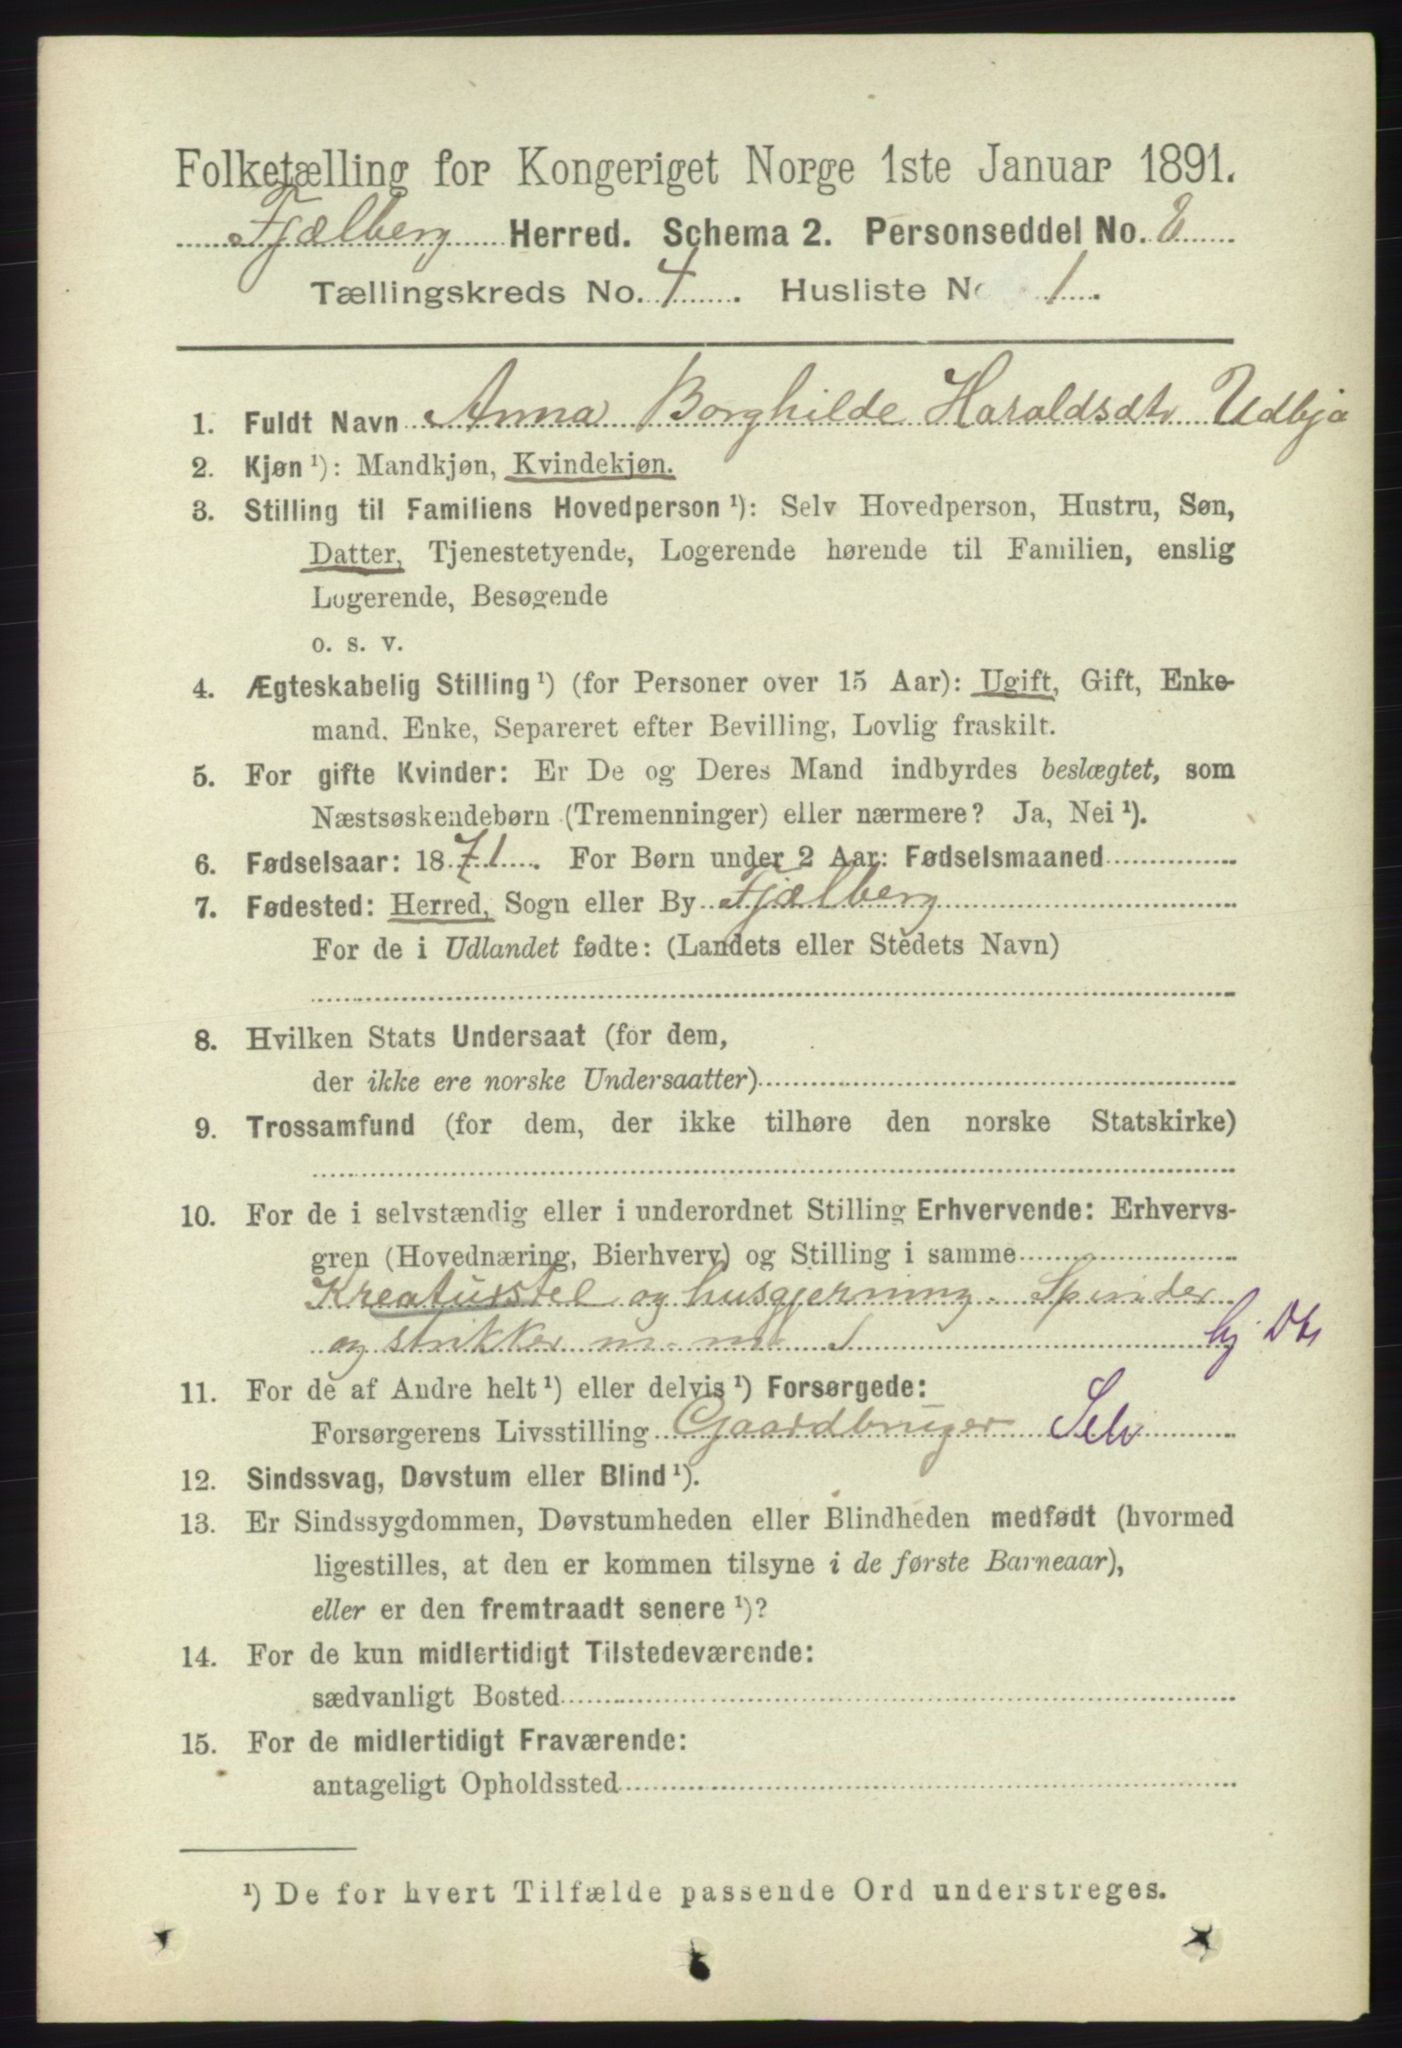 Folketælling for Kongeriget Norge 1ste Januar 1891.
Fjælberg Herred. Schema 2. Personseddel No. 8
Tællingskreds No. 4. Husliste No 1.
1. Fuldt Navn Anna Borghilde Haraldsdtr Udbjo
2. Kjøn ¹): Mandkjøn, Kvindekjøn.
3. Stilling til Familiens Hovedperson ¹): Selv Hovedperson, Hustru, Søn,
Datter, Tjenestetyende, Logerende hørende til Familien, enslig
Logerende, Besøgende
o. s. v.
4. Ægteskabelig Stilling ¹) (for Personer over 15 Aar): Ugift, Gift, Enke-
mand, Enke, Separeret efter Bevilling, Lovlig fraskilt.
5. For gifte Kvinder: Er De og Deres Mand indbyrdes beslægtet, som
Næstsøskendebørn (Tremenninger) eller nærmere? Ja, Nei ¹).
6. Fødselsaar: 1871. For Børn under 2 Aar: Fødselsmaaned
7. Fødested: Herred, Sogn eller By Fjælberg
For de i Udlandet fødte: (Landets eller Stedets Navn)
8. Hvilken Stats Undersaat (for dem,
der ikke ere norske Undersaatter)
9. Trossamfund (for dem, der ikke tilhøre den norske Statskirke)
10. For de i selvstændig eller i underordnet Stilling Erhvervende: Erhvervs-
gren (Hovednæring, Bierhverv) og Stilling i samme
Kreaturstel og husgjerning. Spinder
og strikker m. m. hj Dtr
11. For de af Andre helt ¹) eller delvis ¹) Forsørgede:
Forsørgerens Livsstilling Gaardbruger Selv
12. Sindssvag, Døvstum eller Blind ¹).
13. Er Sindssygdommen, Døvstumheden eller Blindheden medfødt (hvormed
ligestilles, at den er kommen tilsyne i de første Barneaar),
eller er den fremtraadt senere ¹)?
14. For de kun midlertidigt Tilstedeværende:
sædvanligt Bosted
15. For de midlertidigt Fraværende:
antageligt Opholdssted
¹) De for hvert Tilfælde passende Ord understreges.